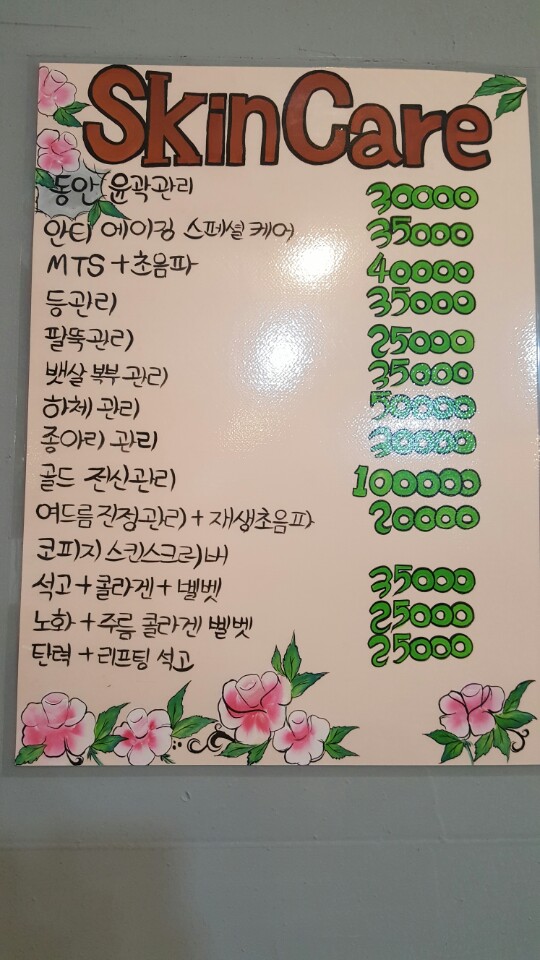 SkinCare
동안 윤곽관리 30000
안티 에이징 스페셜 케어 35000
MTS + 초음파 40000
등관리 35000
팔뚝관리 25000
뱃살 복부 관리 35000
하체 관리 50000
종아리 관리 30000
골드 전신관리 100000
여드름진정관리 + 재생초음파 20000
코피지 스킨스크러버
석고 + 콜라겐 + 벨벳 35000
노화 + 주름 콜라겐 벨벳 25000
탄력 + 리프팅 석고 25000